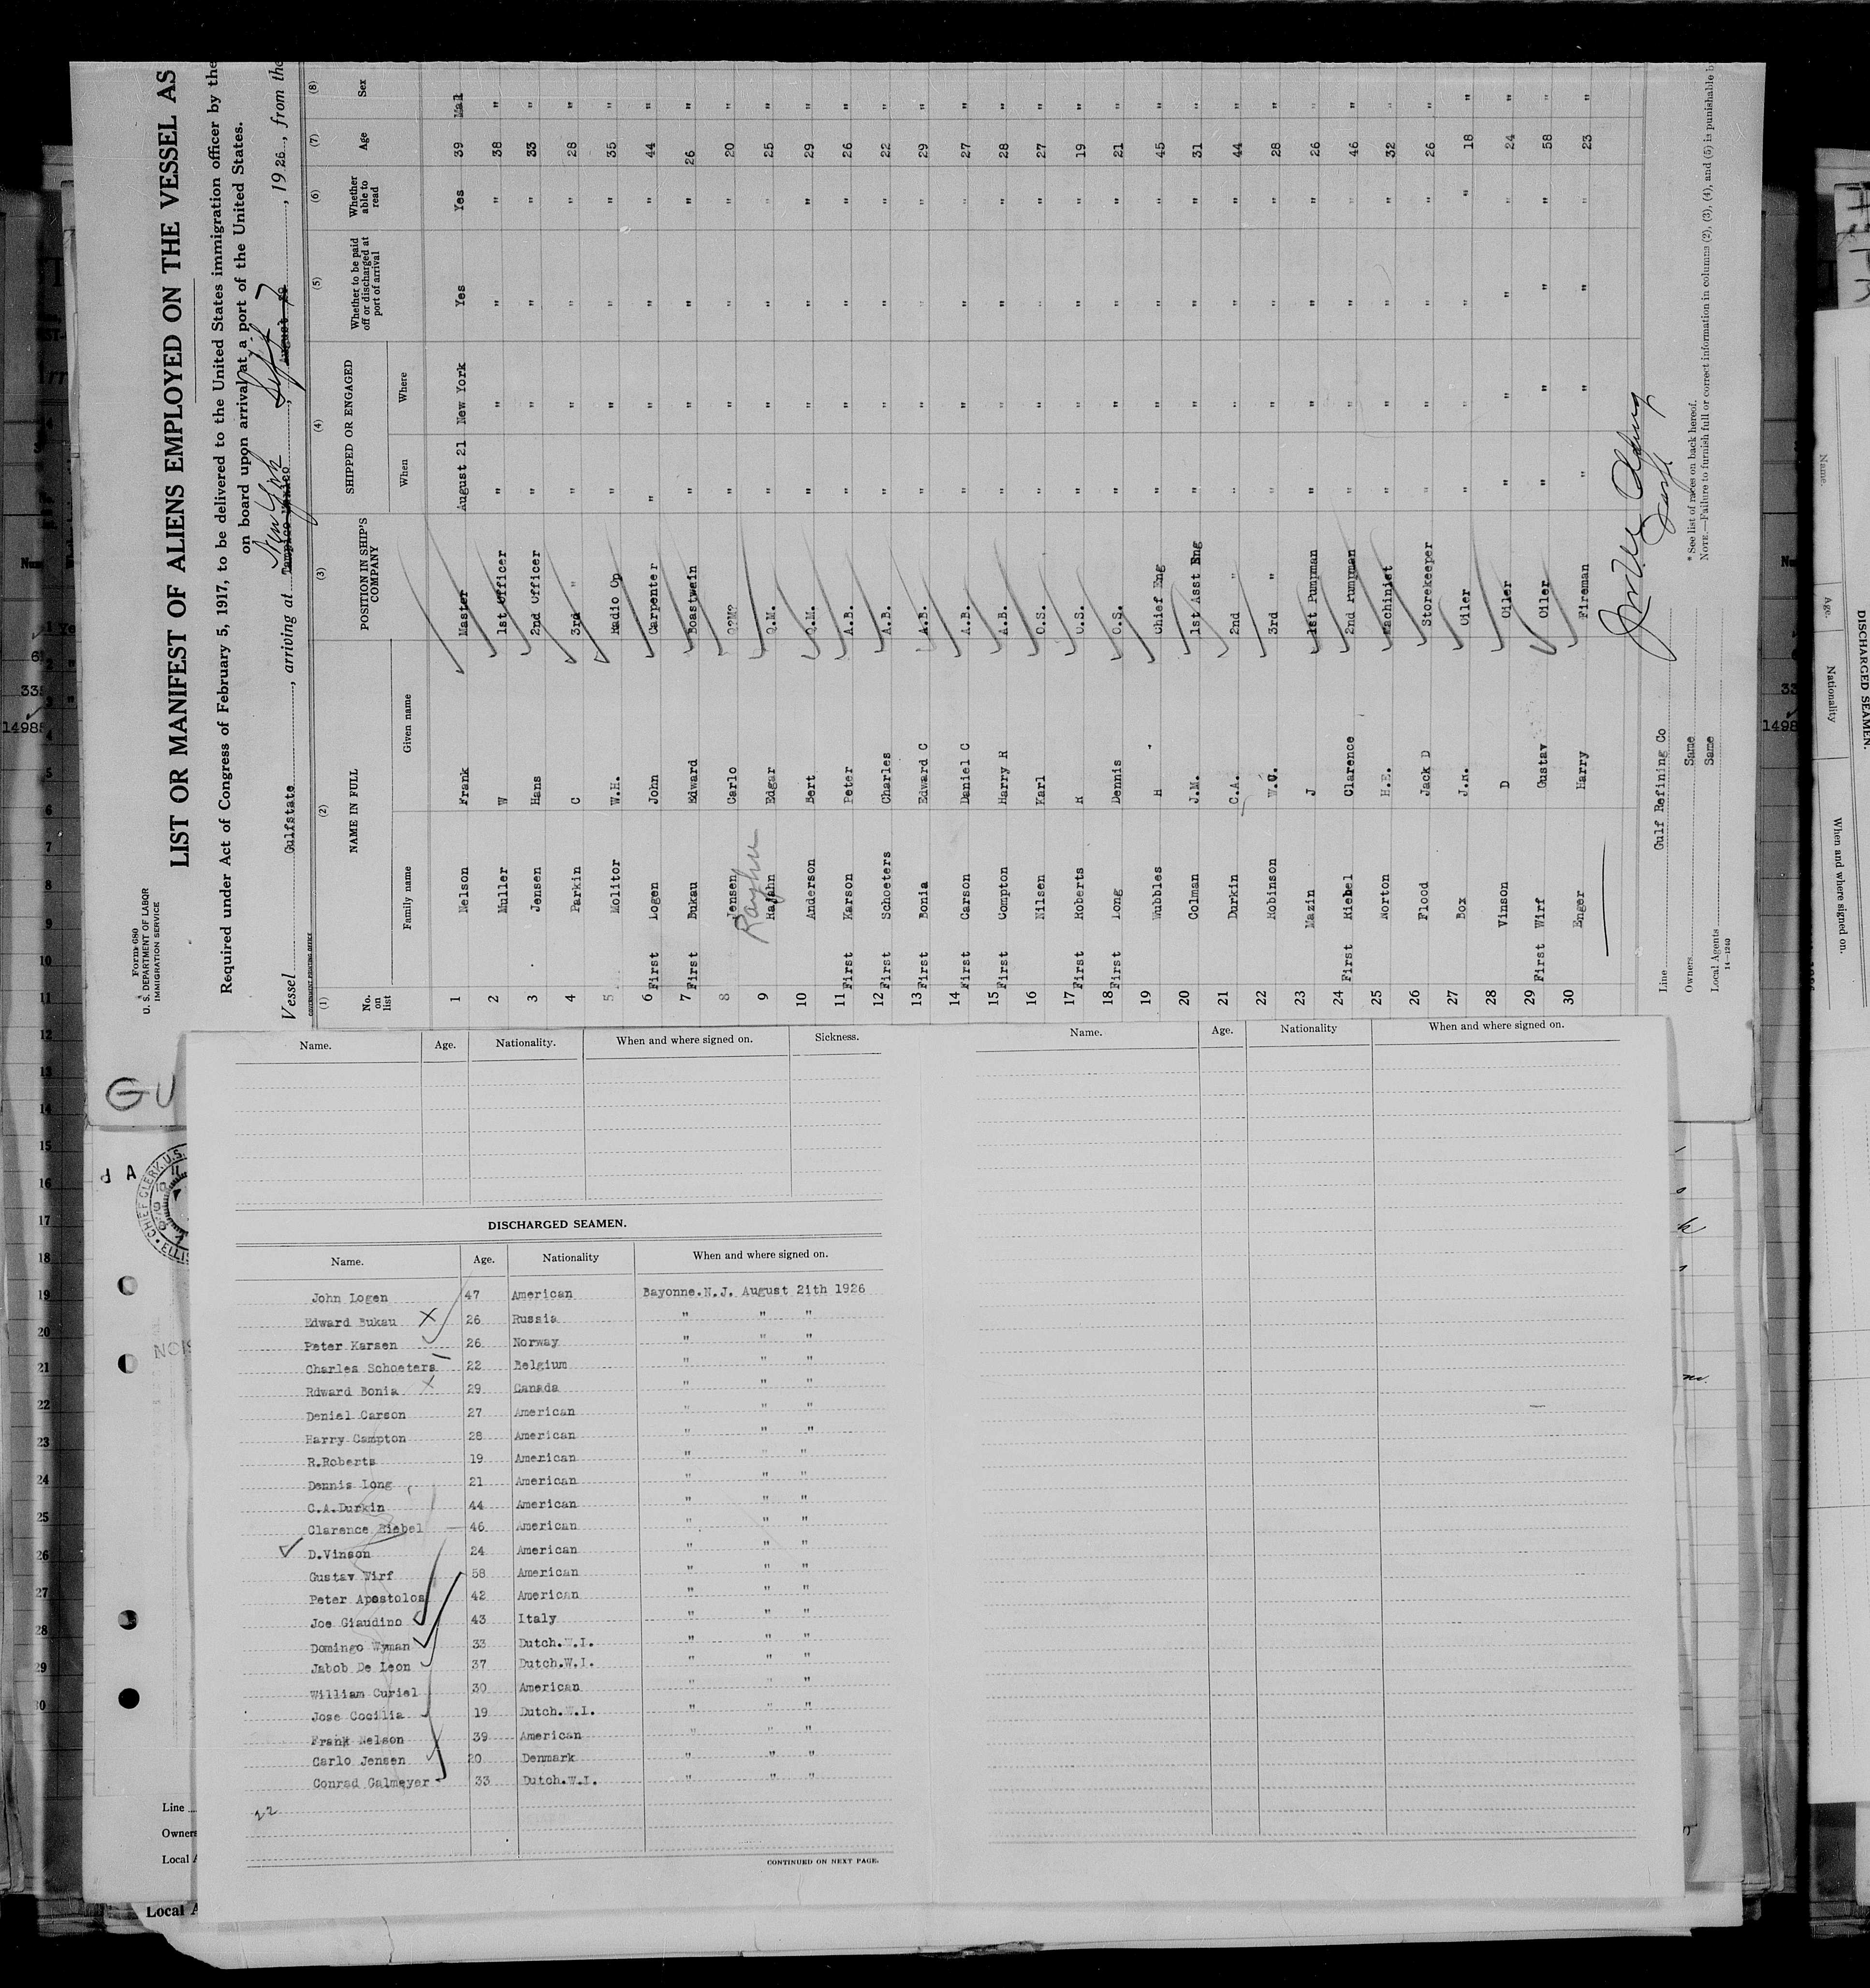 Form 680
U. S. DEPARTMENT OF LABOR
IMMIGRATION SERVICE
LIST OR MANIFEST OF ALIENS EMPLOYED ON THE VESSEL AS
Required under Act of Congress of February 5, 1917, to be delivered to the United States immigration officer by the
on board upon arrival at a port of the United States.
Vessel Gulfstate, arriving at Tampico Mexico New York, August 29 Sept 7, 1926, from the
GOVERNMENT PRINTING OFFICE
(1) (2) (3) (4) (5) (6) (7) (8)
No. on list NAME IN FULL POSITION IN SHIP'S COMPANY SHIPPED OR ENGAGED Whether to be paid off or discharged at port of arrival Whether able to read Age Sex
Family name Given name When Where
1 Nelson Frank Master August 21 New York Yes Yes 39 Mal
2 Muller W 1st Officer " " " " 38 "
3 Jensen Hans 2nd Officer " " " " 33 "
4 Parkin C 3rd " " " " " 28 "
5 Molitor W.H. Radio Op " " " " 35 "
6 First Logen John Carpenter " " " " 44 "
7 First Bukau Edward Boastwein " " " " 26 "
8 Jensen Carlo " " " " 20 "
9 Hajahn Rayhn Edgar Q.M. " " " " 25 "
10 Anderson Bert Q.M. " " " " 29 "
11 First Karson Peter A.B. " " " " 26 "
12 First Schoeters Charles A.B. " " " " 22 "
13 First Bonia Edward C A.B. " " " " 29 "
14 First Carson Daniel C A.B. " " " " 27 "
15 First Compton Harry R A.B. " " " " 28 "
16 Nilsen Karl O.S. " " " " 27 "
17 First Roberts R O.S. " " " " 19 "
18 First Long Dennis O.S. " " " " 21 "
19 Wubbles H Chief Eng " " " " 45 "
20 Colman J.M. 1st Asst Eng " " " " 31 "
21 Durkin C.A. 2nd " " " " " 44 "
22 Robinson W.C. 3rd " " " " " 28 "
23 Mazin J 1st Pumpman " " " " 26 "
24 First Riebel Clarence 2nd Pumpman " " " " 46 "
25 Norton H.E. Machinist " " " " 32 "
26 Flood Jack D Storekeeper " " " " 26 "
27 Box J.H. Oiler " " " " 18 "
28 Vinson D Oiler " " " " 24 "
29 First Wirf Gustav Oiler " " " " 58 "
30 Enger Harry Fireman " " " " 23 "
Line Gulf Refining Co
Owners Same
Local Agents Same
14—1240
* See list of races on back hereof.
NOTE.—Failure to furnish full or correct information in columns (2), (3), (4), and (5) is punishable b
GU
Name. Age. Nationality. When and where signed on. Sickness.
DISCHARGED SEAMEN.
Name. Age. Nationality When and where signed on.
John Logen 47 American Bayonne.N.J. August 21th 1926
Edward Bukau X 26 Russia " " "
Peter Karsen 26 Norway " " "
Charles Schoeters 22 Belgium " " "
Rdward Bonia X 29 Canada " " "
Deniel Carson 27 American " " "
Harry Campton 28 American " " "
R.Roberts 19 American " " "
Dennis Long 21 American " " "
C.A.Durkin 44 American " " "
Clarence Riebel 46 American " " "
D.Vinson 24 American " " "
Gustav Wirf 58 American " " "
Peter Apostolos 42 American " " "
Joe Giaudino 43 Italy " " "
Domingo Wyman 33 Dutch.W.I. " " "
Jabob De Leon 37 Dutch.W.I. " " "
William Curiel 30 American " " "
Jose Cocilia 19 Dutch.W.I. " " "
Frank Nelson 39 American " " "
Carlo Jensen 20 Denmark " " "
Conrad Galmeyer 33 Dutch.W.I. " " "
22
CONTINUED ON NEXT PAGE.
Name. Age. Nationality When and where signed on.
Line
Owners
Local A
Local A
CHIEF CLERK U.S.
ELLIS
1
2
3
4
5
6
7
8
9
10
11
12
13
14
15
16
17
18
19
20
21
22
23
24
25
26
27
28
29
30
1498
DISCHARGED SEAMEN.
Name. Age. Nationality When and where signed on.